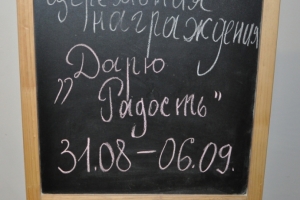 награждения
„Дарю
Радость"
31.08 – 06.09.